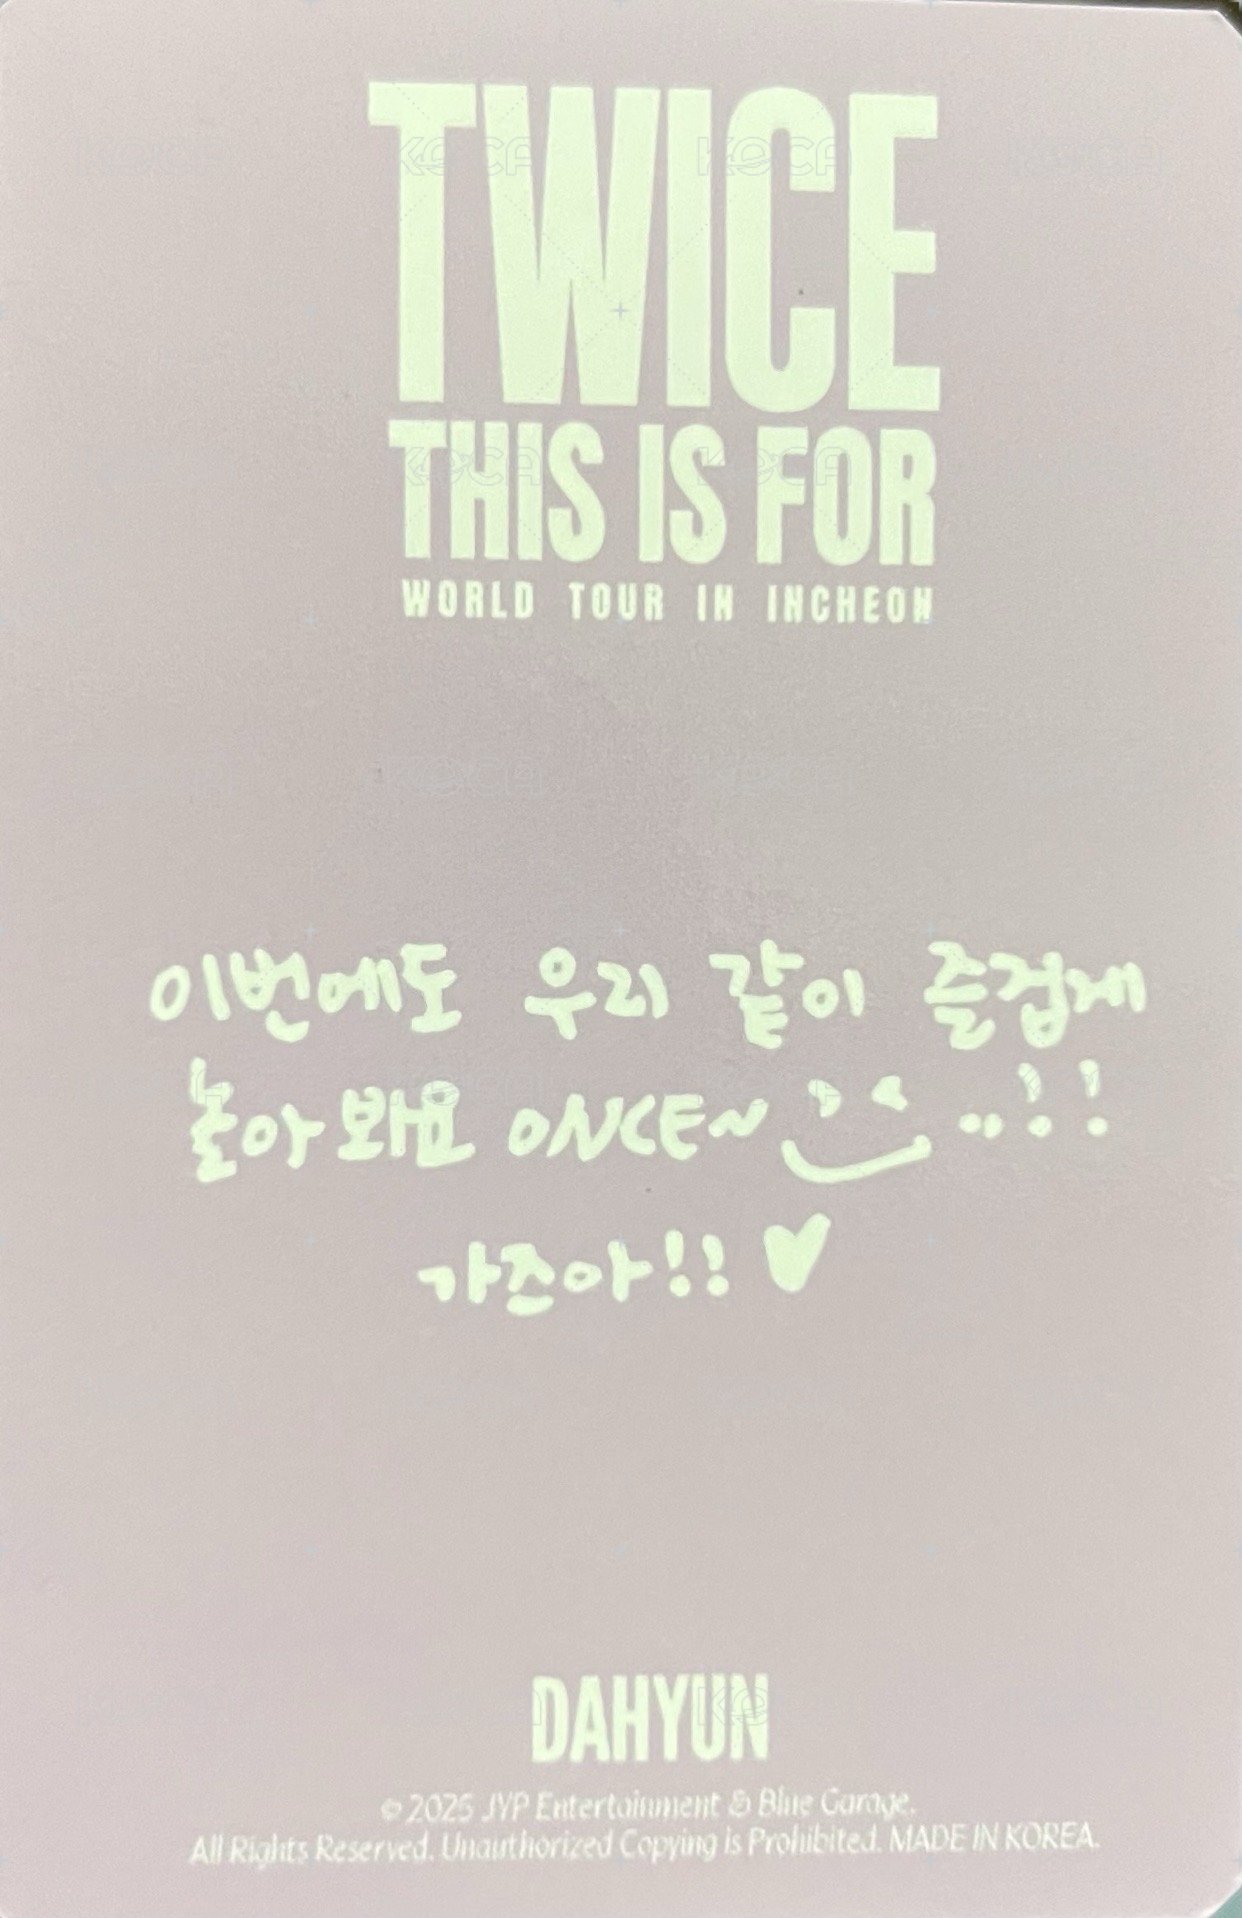 TWICE
THIS IS FOR
WORLD TOUR IN INCHEON
이번에도 우리 같이 즐겁게
놀아봐요 ONCE~ ..!!
가즈아!! ♥
DAHYUN
© 2025 JYP Entertainment & Blue Garage.
All Rights Reserved. Unauthorized Copying is Prohibited. MADE IN KOREA.